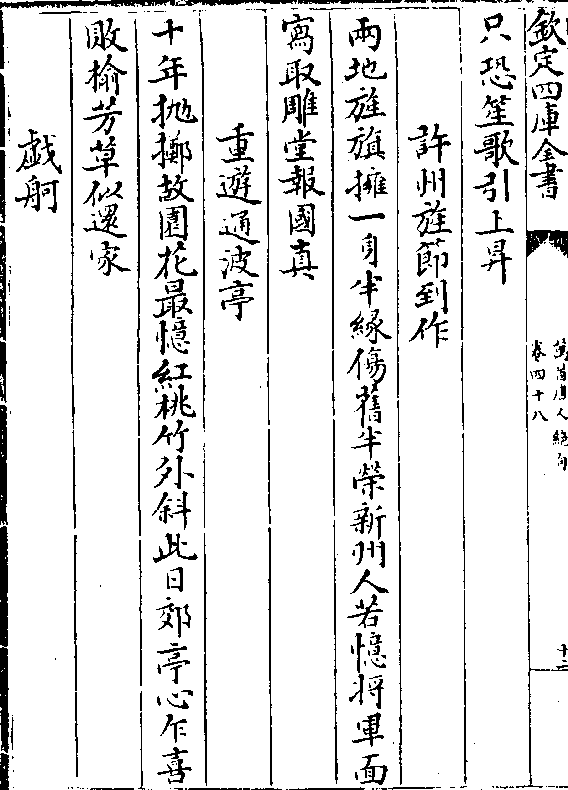 欽定四庫全書
萬首唐人絶句
卷四十八
十二
只恐笙歌引上昇
許州旌節到作
兩地旌旗擁一身半緣傷舊半榮新州人若憶將軍面
寫取雕堂報國真
重遊通波亭
十年抛擲故園花最憶紅桃竹外斜此日郊亭心乍喜
敗榆芳草似還家
戯舸